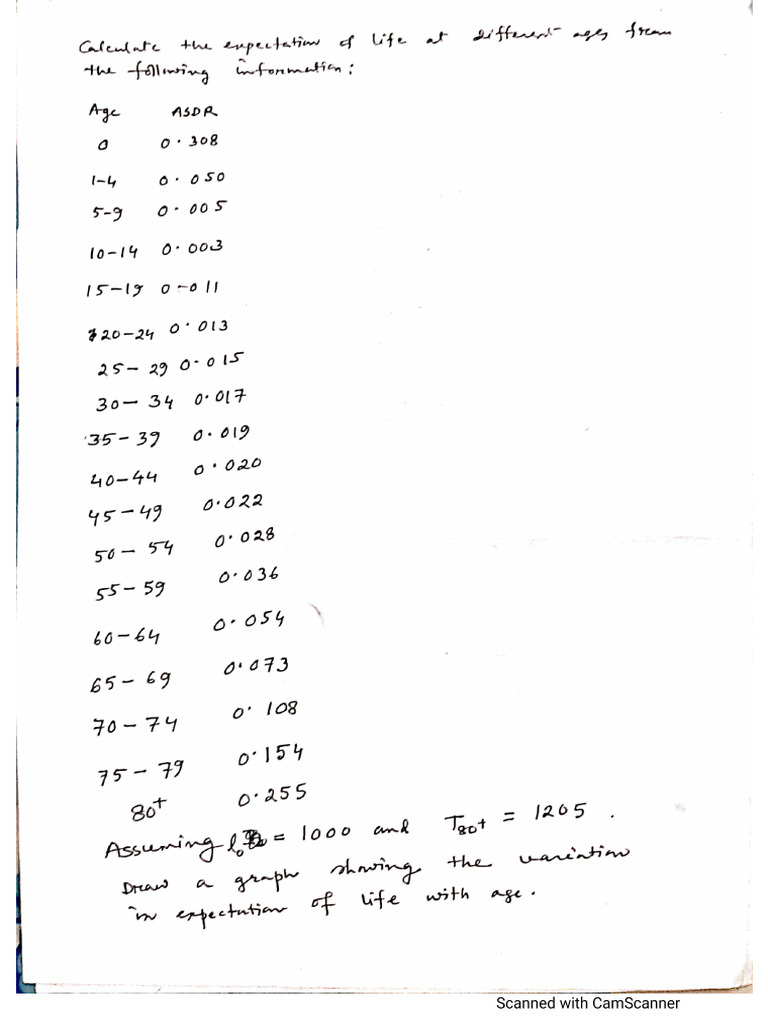 Calculate the expectation of life at different ages from
the following information:
Age ASDR
0 0.308
1-4 0.050
5-9 0.005
10-14 0.003
15-19 0-011
20-24 0.013
25-29 0.015
30-34 0.017
35-39 0.019
40-44 0.020
45-49 0.022
50-54 0.028
55-59 0.036
60-64 0.054
65-69 0.073
70-74 0.108
75-79 0.154
80+ 0.255
Assuming l₀ = 1000 and T80+ = 1205.
Draw a graph showing the variation
in expectation of life with age.
Scanned with CamScanner